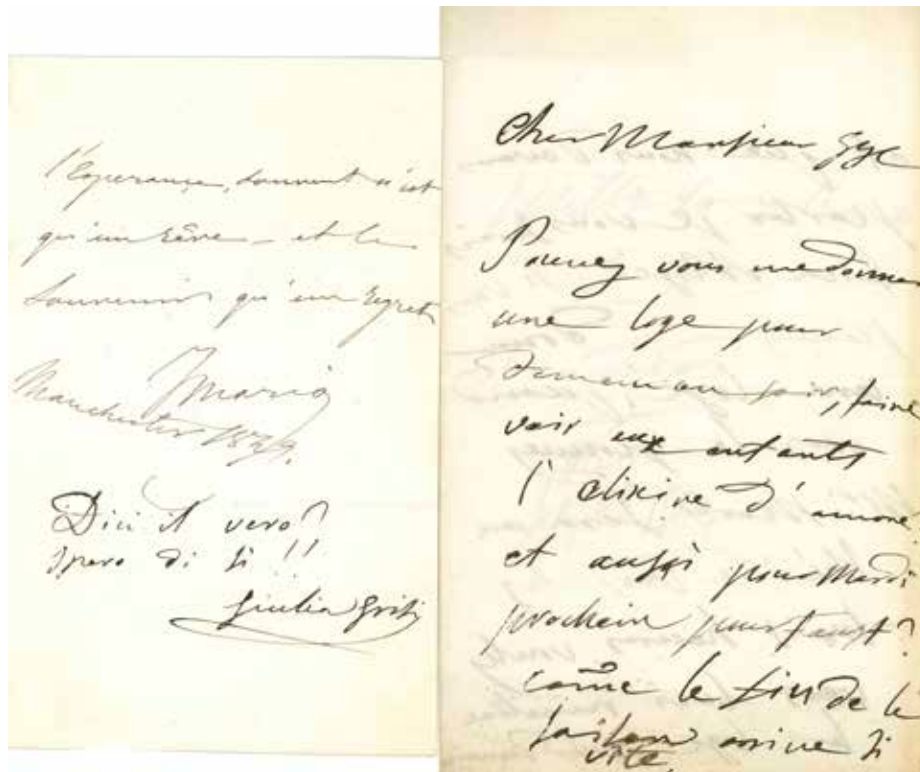 l'Esperance, souvent n'est
qu'un Rêve - et le
Souvenir qu'un Regret
Mario
Manchester
Dici il vero?
Spero di si !!
Giulia Grisi
Cher Monsieur Gye
Pouvez vous me donner
une loge pour
demain au soir, faire
voir aux enfants
l'elisire d'amore
et aussi pour Mardi
prochain pour Faust?
come le fin de la
saison arrive si
vite